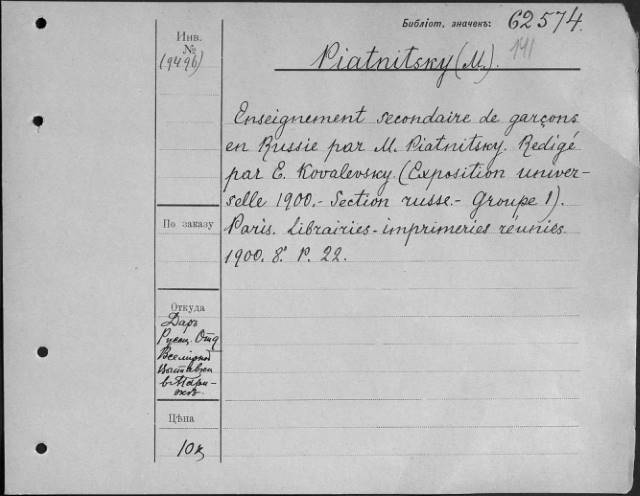 Библіот. значекъ: 62574.
141
Инв.
№
(9496)
Piatnitsky (M.)
Enseignement secondaire de garçons
en Russie par M. Piatnitsky. Redigé
par E. Kovalevsky. (Exposition univer-
selle 1900.- Section russe.- Groupe 1).
Paris. Librairies-imprimeries réunies.
1900. 8°. P. 22.
По заказу
Откуда
Даръ
Русск. Отд
Всемірной
Выставки
в Пари-
жѣ
Цѣна
10к